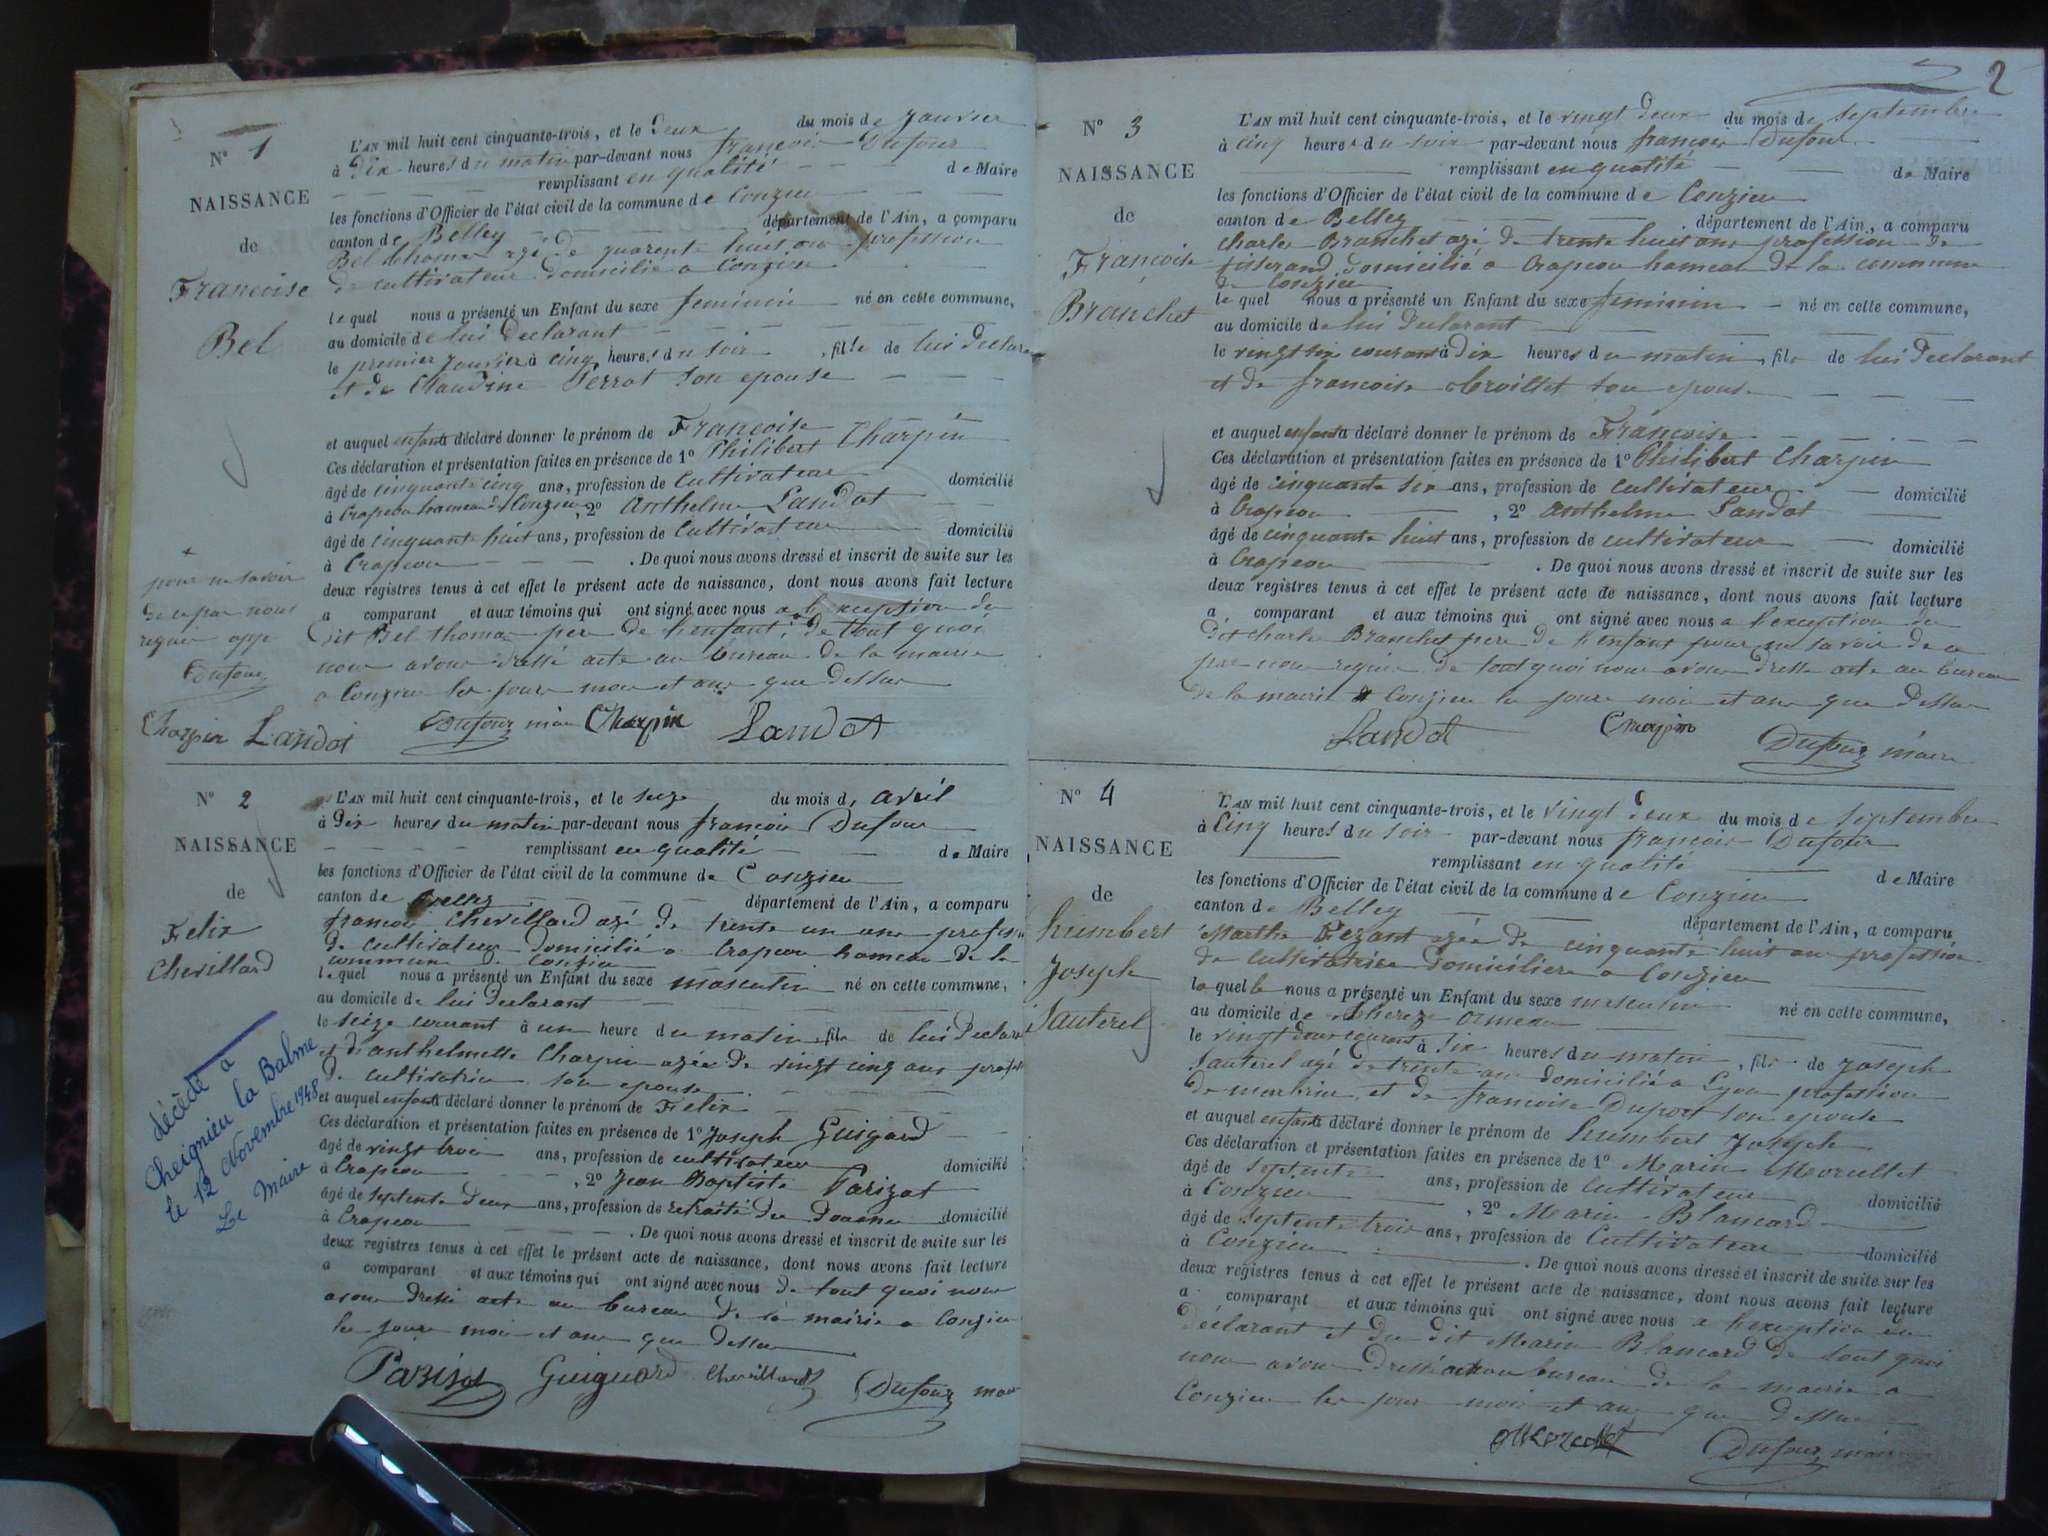 2
N° 1
NAISSANCE
de
Francoise
Bel
L'AN mil huit cent cinquante-trois, et le deux du mois de Janvier
à dix heures du matin par-devant nous françois Dufour
remplissant en qualité de Maire
les fonctions d'Officier de l'état civil de la commune de Conzieu
canton de Belley département de l'Ain, a comparu
Bel thomas agé de quarente huit ans profession
de cultivateur domicilié a Conzieu
lequel nous a présenté un Enfant du sexe feminin né en cette commune,
au domicile de lui declarant
le premier Janvier à cinq heures du soir, fille de lui declarant
et de Claudine Perrat son epouse
et auquel enfant a déclaré donner le prénom de Francoise
Ces déclaration et présentation faites en présence de 1° Philibert Charpin
âgé de cinquante cinq ans, profession de Cultivateur domicilié
à Crapeou hameau de Conzieu, 2° Anthelme Landot
âgé de cinquante huit ans, profession de Cultivateur domicilié
à Crapeou . De quoi nous avons dressé et inscrit de suite sur les
deux registres tenus à cet effet le présent acte de naissance, dont nous avons fait lecture
a comparant et aux témoins qui ont signé avec nous a l'exception du
dit Bel thomas pere de l'enfant + de tout quoi
nous avons dressé acte au bureau de la mairie
a Conzieu les jours mois et ans que dessus
+
pour ne savoir
de ce par nous
requis
Dufour
Charpin Landot Dufour maire Charpin Landot
N° 2
NAISSANCE
de
Felix
Chevillard
L'AN mil huit cent cinquante-trois, et le seize du mois d, avril
à dix heures du matin par-devant nous françois Dufour
remplissant en qualité de Maire
les fonctions d'Officier de l'état civil de la commune de Conzieu
canton de Belley département de l'Ain, a comparu
françois Chevillard agé de trente un ans profession
de cultivateur domicilié a Crapeou hameau de la
commune de Conzieu
lequel nous a présenté un Enfant du sexe masculin né en cette commune,
au domicile de lui declarant
le seize courant à un heure du matin, fils de lui declarant
et d'anthelmette Charpin agée de vingt cinq ans profession
de cultivatrice son epouse
et auquel enfant a déclaré donner le prénom de Felix
Ces déclaration et présentation faites en présence de 1° Joseph Guigard
âgé de vingt trois ans, profession de cultivateur domicilié
à Crapeou, 2° Jean Baptiste Parizot
âgé de septente deux ans, profession de retraité des douanes domicilié
à Crapeou . De quoi nous avons dressé et inscrit de suite sur les
deux registres tenus à cet effet le présent acte de naissance, dont nous avons fait lecture
a comparant et aux témoins qui ont signé avec nous de tout quoi nous
avons dressé acte au bureau de la mairie a Conzieu
les jours mois et ans que dessus
décédé à
Cheignieu la Balme
le 12 Novembre 1948
Le Maire
Parizot Guiguard Chevillard Dufour maire
N° 3
NAISSANCE
de
Francoise
Branchet
L'AN mil huit cent cinquante-trois, et le vingt deux du mois de septembre
à cinq heures du soir par-devant nous françois Dufour
remplissant en qualité de Maire
les fonctions d'Officier de l'état civil de la commune de Conzieu
canton de Belley département de l'Ain, a comparu
charles Branchet agé de trente huit ans profession de
tisserand domicilié a Crapeou hameau de la commune
de Conzieu
lequel nous a présenté un Enfant du sexe feminin né en cette commune,
au domicile de lui declarant
le vingt six courant à dix heures du matin, fils de lui declarant
et de francoise son epouse
et auquel enfant a déclaré donner le prénom de Francoise
Ces déclaration et présentation faites en présence de 1° Philibert Charpin
âgé de cinquante six ans, profession de cultivateur domicilié
à Crapeou, 2° Anthelme Landot
âgé de cinquante huit ans, profession de cultivateur domicilié
à Crapeou . De quoi nous avons dressé et inscrit de suite sur les
deux registres tenus à cet effet le présent acte de naissance, dont nous avons fait lecture
a comparant et aux témoins qui ont signé avec nous a l'exception du
dit charles Branchet pere de l'enfant pour ne savoir de ce
par nous requis de tout quoi nous avons dressé acte au bureau
de la mairie Conzieu les jours mois et ans que dessus
Landot Charpin Dufour maire
N° 4
NAISSANCE
de
humbert
Joseph
Sauterel
L'AN mil huit cent cinquante-trois, et le vingt deux du mois de septembre
à Cinq heures du soir par-devant nous françois Dufour
remplissant en qualité de Maire
les fonctions d'Officier de l'état civil de la commune de Conzieu
canton de Belley département de l'Ain, a comparu
Marthe agée de cinquante huit ans profession
de cultivatrice domiciliere a Conzieu
laquelle nous a présenté un Enfant du sexe masculin né en cette commune,
au domicile de
le vingt deux courant à dix heures du matin, fils de Joseph
Sauterel agé de trente ans domicilié a Lyon profession
de et de francoise Duport son epouse
et auquel enfant a déclaré donner le prénom de humbert Joseph
Ces déclaration et présentation faites en présence de 1° Marin Morellet
âgé de septente ans, profession de Cultivateur domicilié
à Conzieu, 2° Marin Blancard
âgé de septente trois ans, profession de Cultivateur domicilié
à Conzieu . De quoi nous avons dressé et inscrit de suite sur les
deux registres tenus à cet effet le présent acte de naissance, dont nous avons fait lecture
a comparant et aux témoins qui ont signé avec nous a l'exception du
déclarant et du dit Marin Blancard de tout quoi
nous avons dressé acte au bureau de la mairie a
Conzieu les jour mois et ans que dessus
Dufour maire